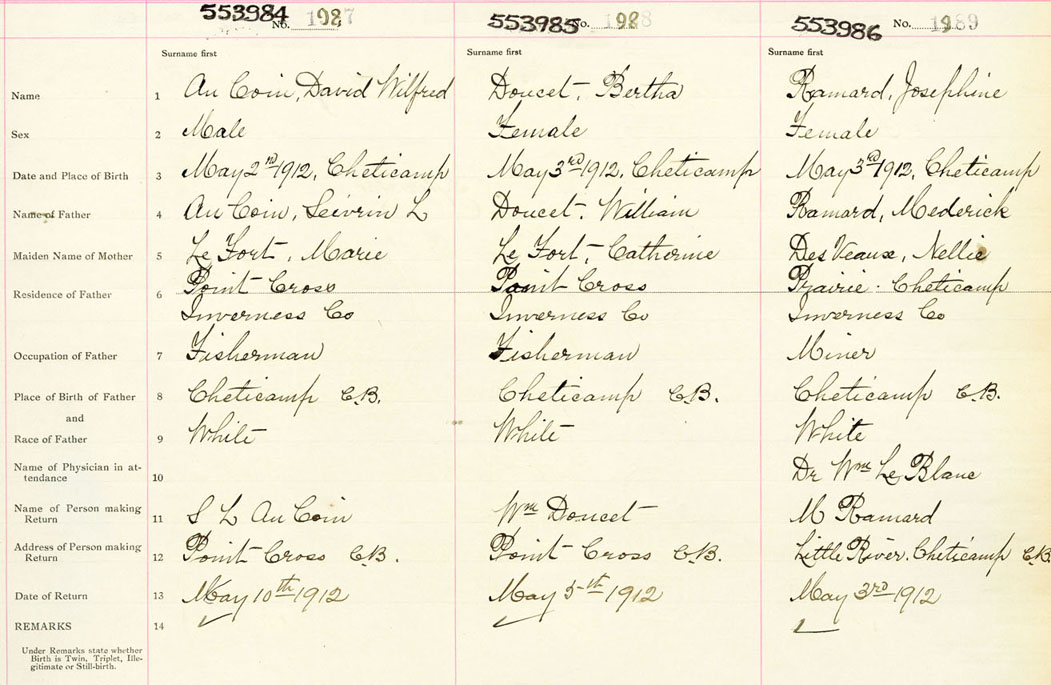 553984 No. 1987 553985 No. 1988 553986 No. 1989
Surname first Surname first Surname first
Name 1 Au Coin, David Wilfred Doucet, Bertha Ramard, Josephine
Sex 2 Male Female Female
Date and Place of Birth 3 May 2nd 1912, Cheticamp May 3rd 1912, Cheticamp May 3rd 1912, Cheticamp
Name of Father 4 Au Coin, Seivrin L Doucet, William Ramard, Mederick
Maiden Name of Mother 5 Le Fort, Marie Le Fort, Catherine Des Veaux, Nellie
Residence of Father 6 Point Cross Point Cross Prairie. Cheticamp
Inverness Co Inverness Co Inverness Co
Occupation of Father 7 Fisherman Fisherman Miner
Place of Birth of Father 8 Cheticamp C.B. Cheticamp C.B. Cheticamp C.B.
and
Race of Father 9 White White White
Name of Physician in at-
tendance 10 Dr Wm Le Blanc
Name of Person making
Return 11 S L Au Coin Wm Doucet M Ramard
Address of Person making
Return 12 Point Cross C.B. Point Cross C.B. Little River. Cheticamp C.B.
Date of Return 13 May 10th 1912 May 5th 1912 May 3rd 1912
REMARKS 14
Under Remarks state whether
Birth is Twin, Triplet, Ille-
gitimate or Still-birth.